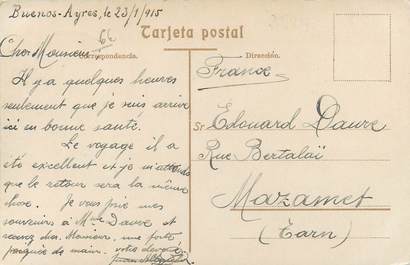 Buenos-Ayres, le 23/1/915
66
Tarjeta postal
Correspondencia.
Dirección.
Cher Monsieur
Il y a quelques heures
seulement que je suis arrivé
ici en bonne santé.
Le voyage il a
été excellent et je m'attends
que le retour sera la même
chose. Je vous prie mes
souvenirs à Mme Daure et
recevez cher Monsieur, une forte
poignée de main. votre
France
Sr Edouard Daure
Rue Bertalaï
Mazamet
(Tarn)